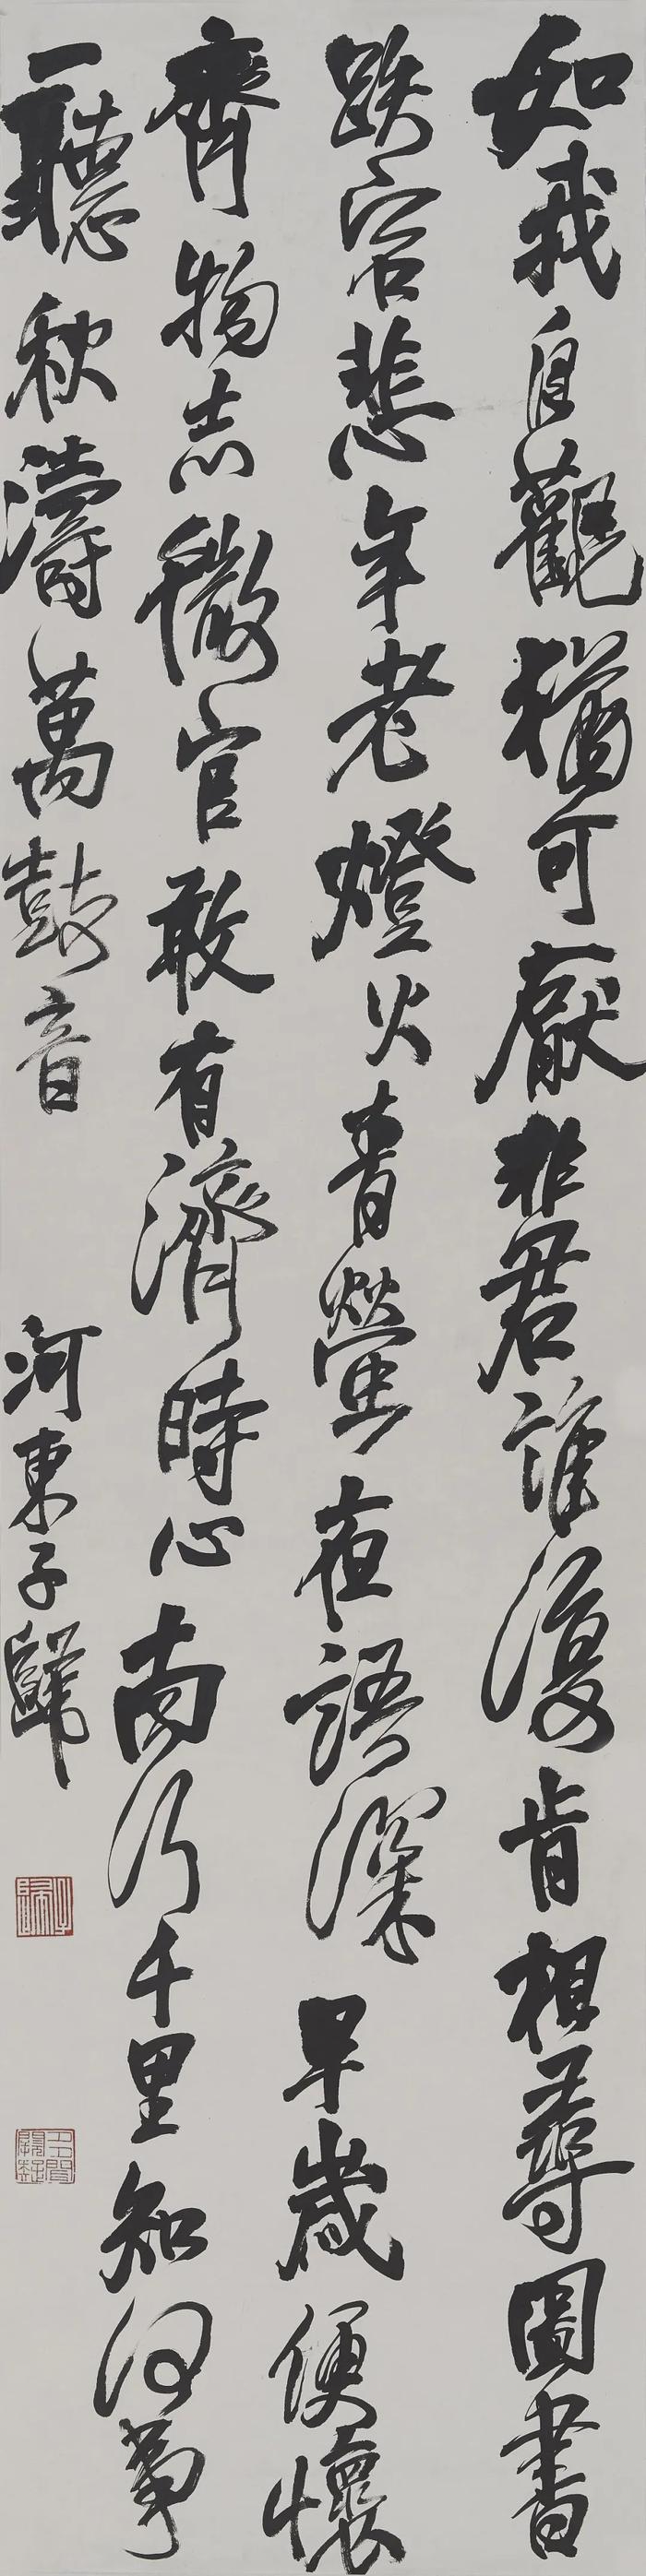 如我自觀猶可厭非君誰復肯相尋圖書
跌宕悲年老燈火青熒夜語深早歲便懷
齊物志微官敢有濟時心南行千里知何事
一聽秋濤萬鼓音
河東子歸